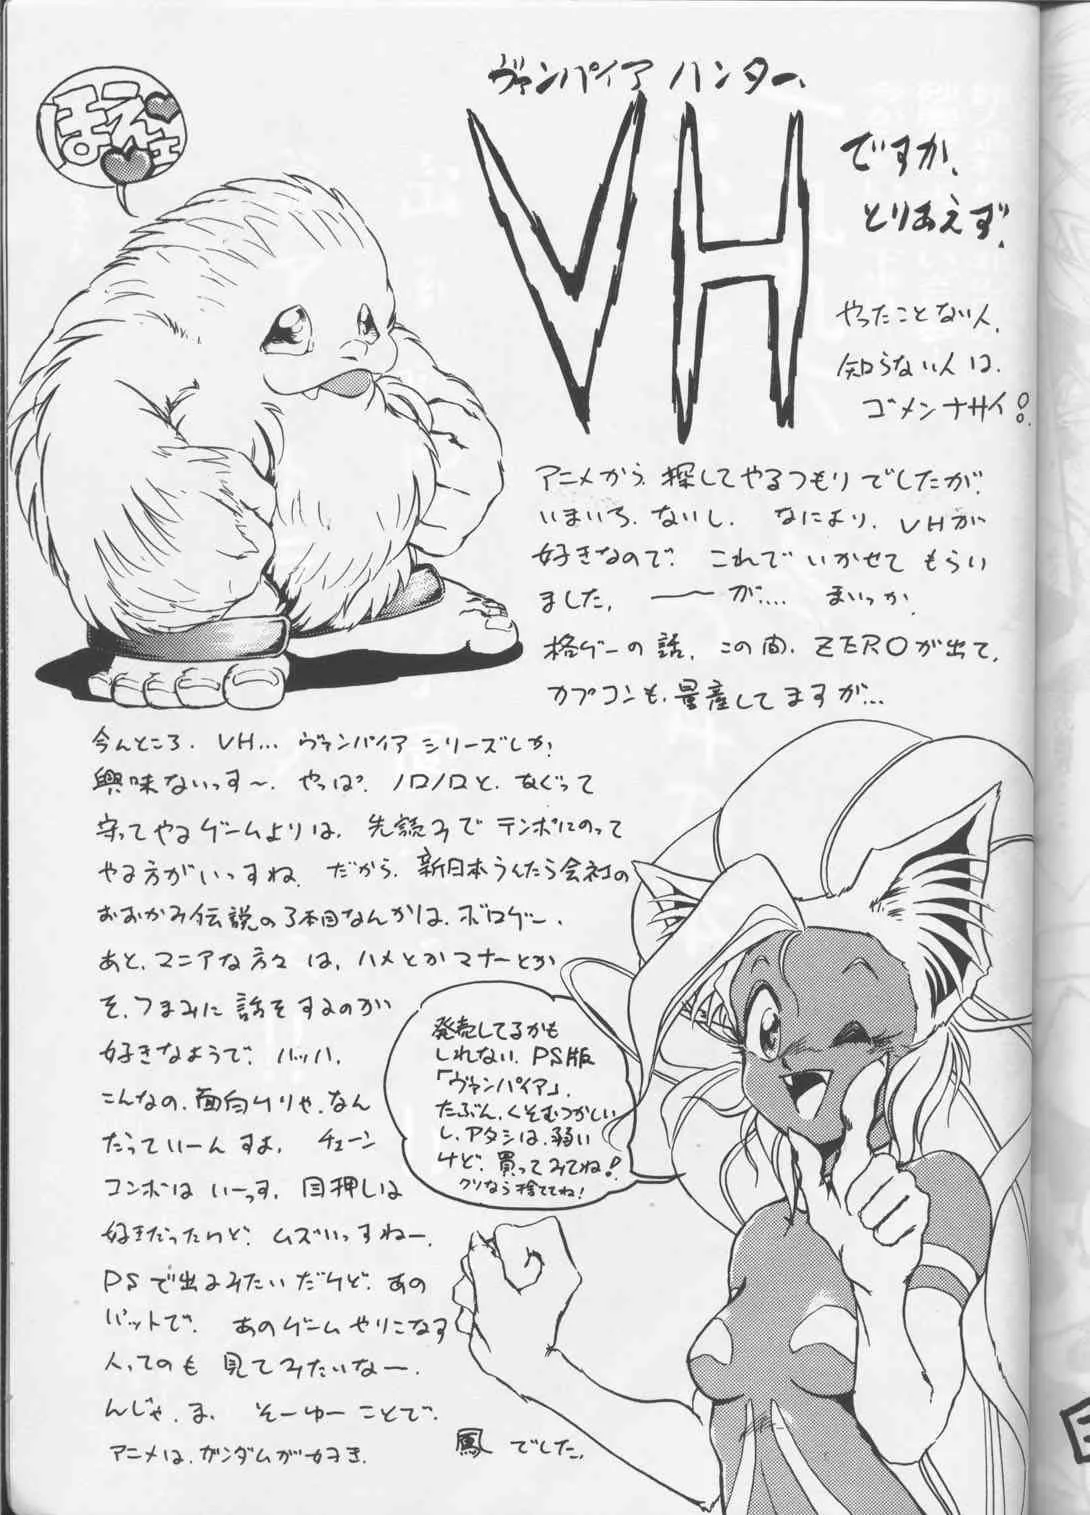 ヴァンパイア ハンター、
VH
ですか、
とりあえず。
ほえェ
やったことない人、
知らない人は、
ゴメンナサイ!。
アニメから、探してやるつもりでしたが、
いまいち、ないし、なにより、VHが
好きなので、これでいかせてもらい
ました。――が…。まいっか。
格ゲーの話、この間、ZEROが出て、
カプコンも、量産してますが…
今んところ、VH…ヴァンパイアシリーズしか、
興味ないっす〜。やっぱ、ノロノロと、なぐって
守ってやるゲームよりは、先読みでテンポにのって
やる方がいっすね。だから、新日本うんたら会社の
おおかみ伝説の3本目なんかは、ボロゲー。
あと、マニアな方々は、ハメとかマナーとか
を、つまみに話をするのが
好きなようで、バッハ。
こんなの、面白けりゃ、なん
だっていーんすよ。チェーン
コンボはいーっす。目押しは
好きだったけど、ムズいっすねー。
PSで出るみたいだけど、あの
パットで、あのゲームやりこなす
人ってのも見てみたいなー。
んじゃ、ま、そーゆーことで。
アニメは、ガンダムが好き。
鳳でした。
発売してるかも
しれない、PS版
「ヴァンパイア」、
たぶん、くそむつかしい
し、アタシは、弱い
けど、買ってみてね!
クソなら捨ててね!